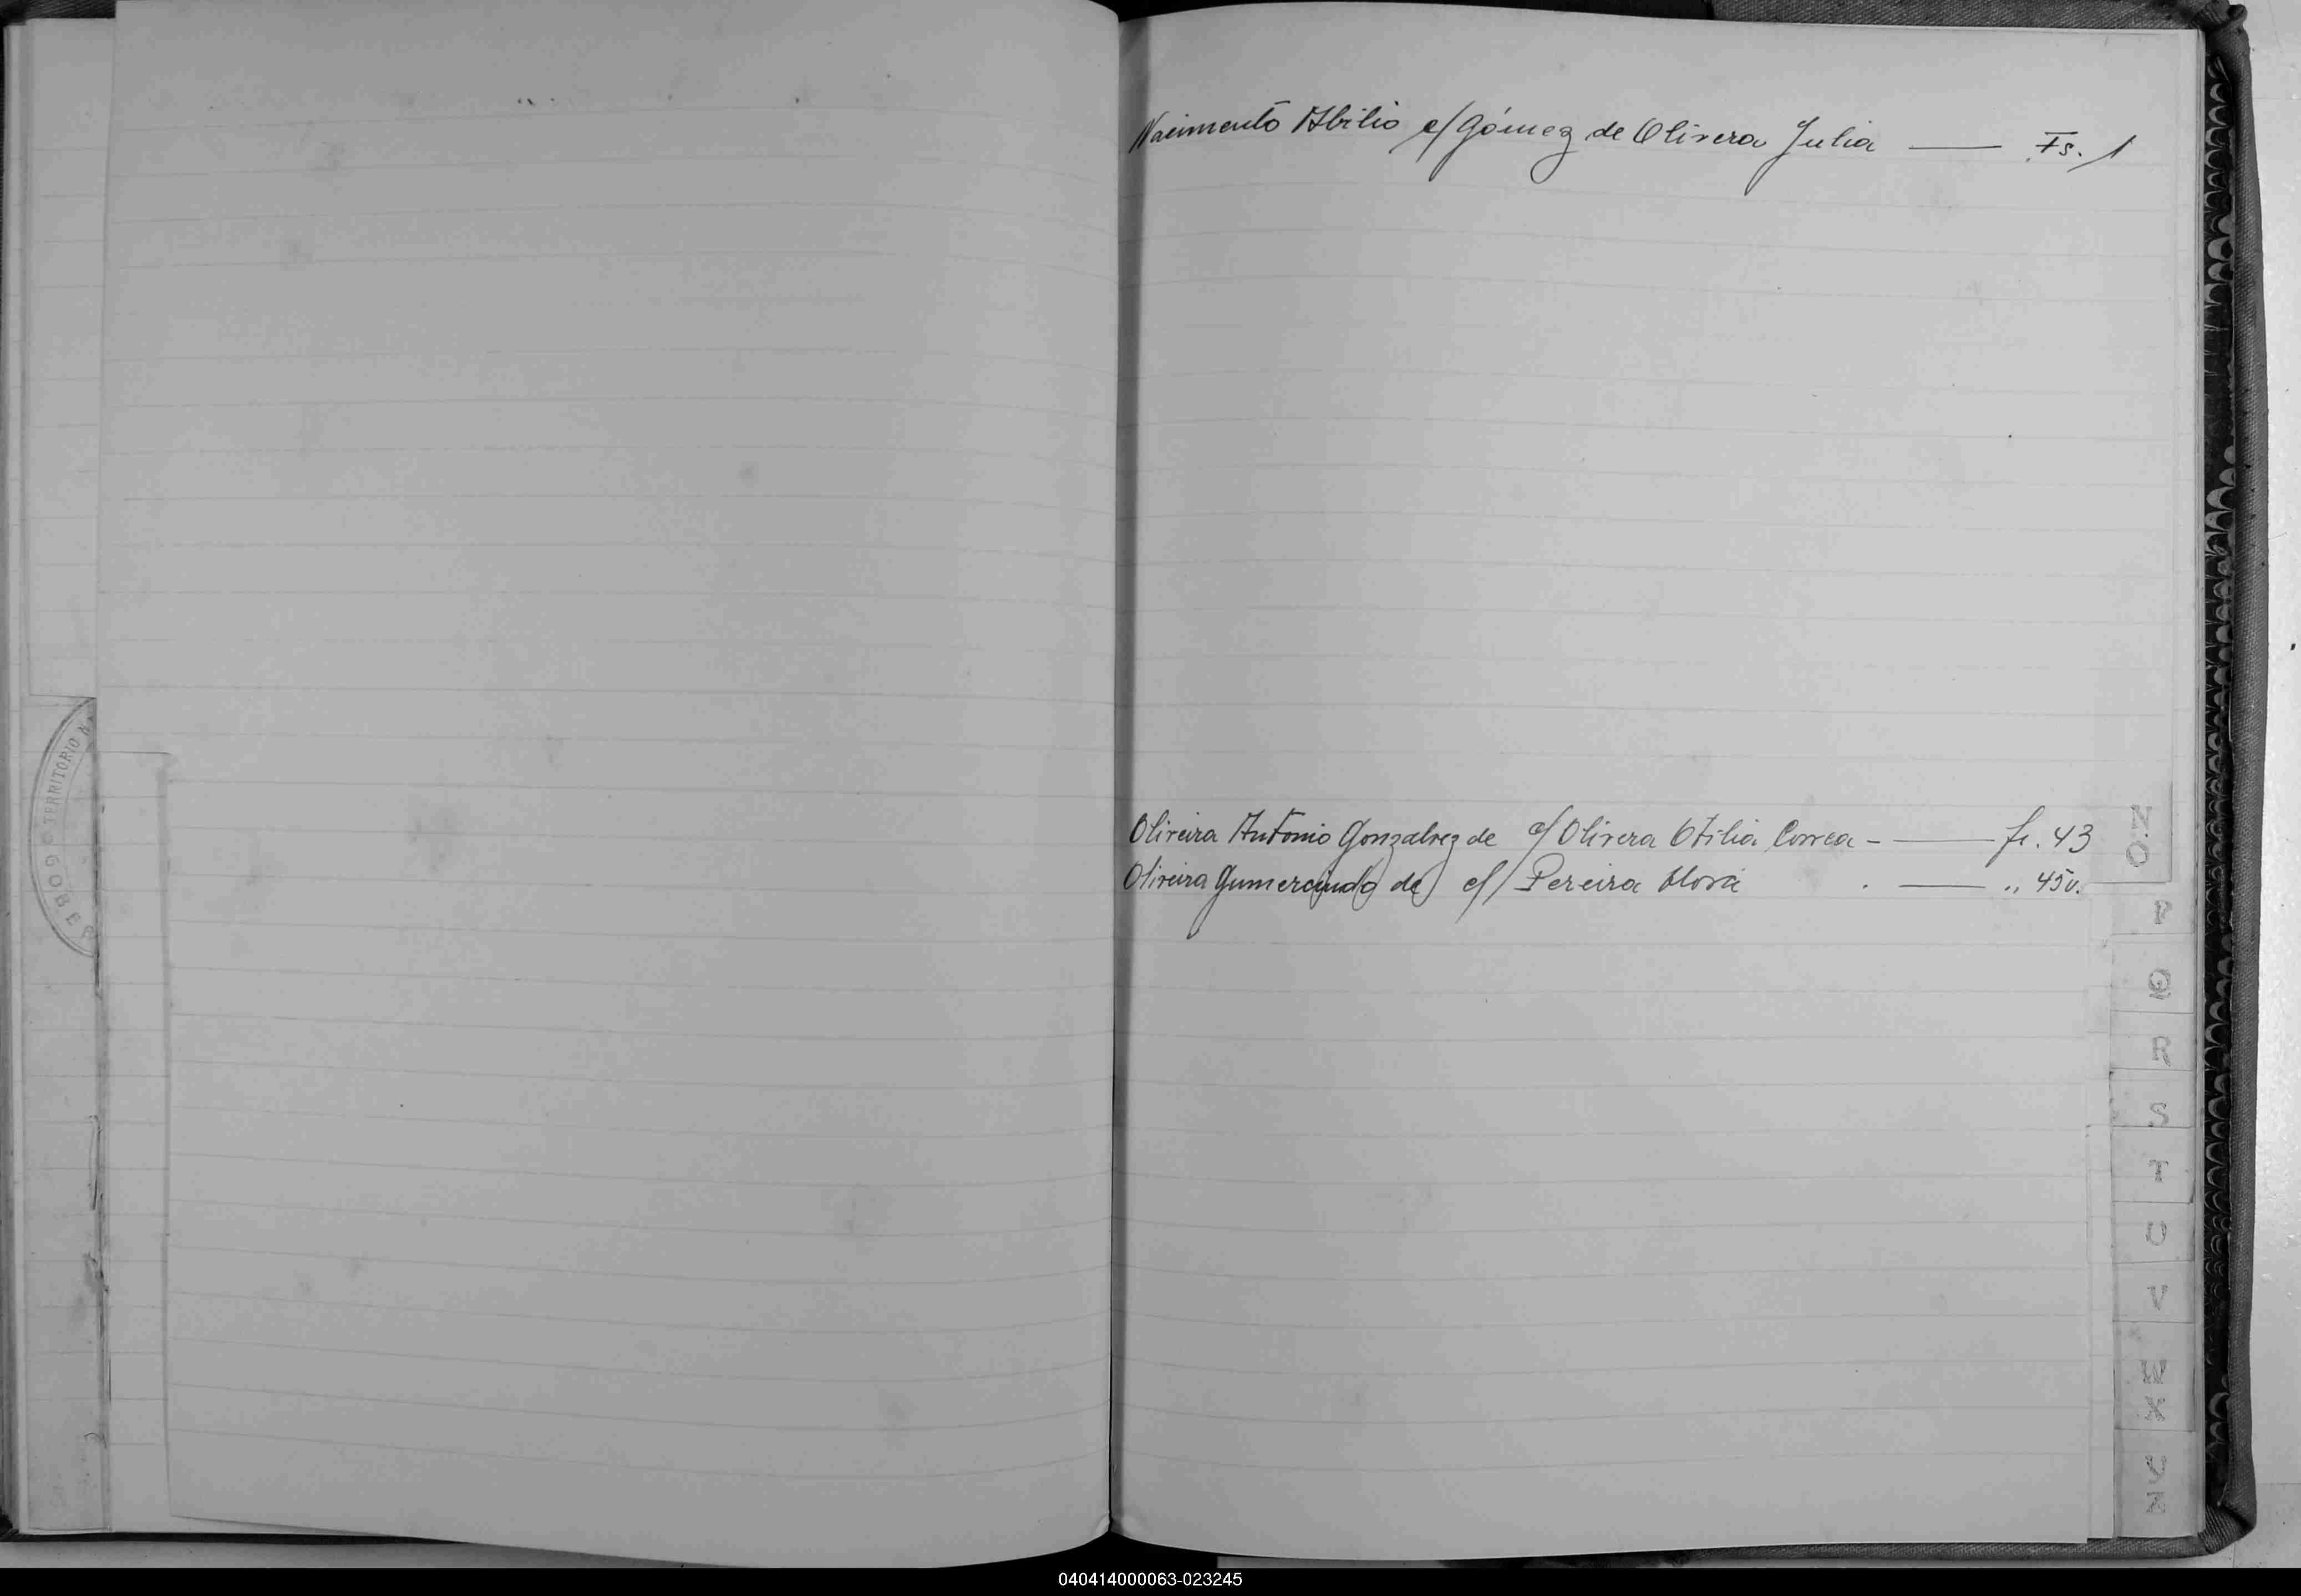 TERRITORIO N
GOBER
Nacimento Abilio c/ Gómez de Olivera Julia — Fs. 1
Oliveira Antonio Gonzalvez de c/ Olivera Otilia Correa - — fs. 43
Oliveira Gumercindo de c/ Pereira — „ 45v.
N.O
P
Q
R
S
T
U
V
W
X
Y
Z
040414000063-023245